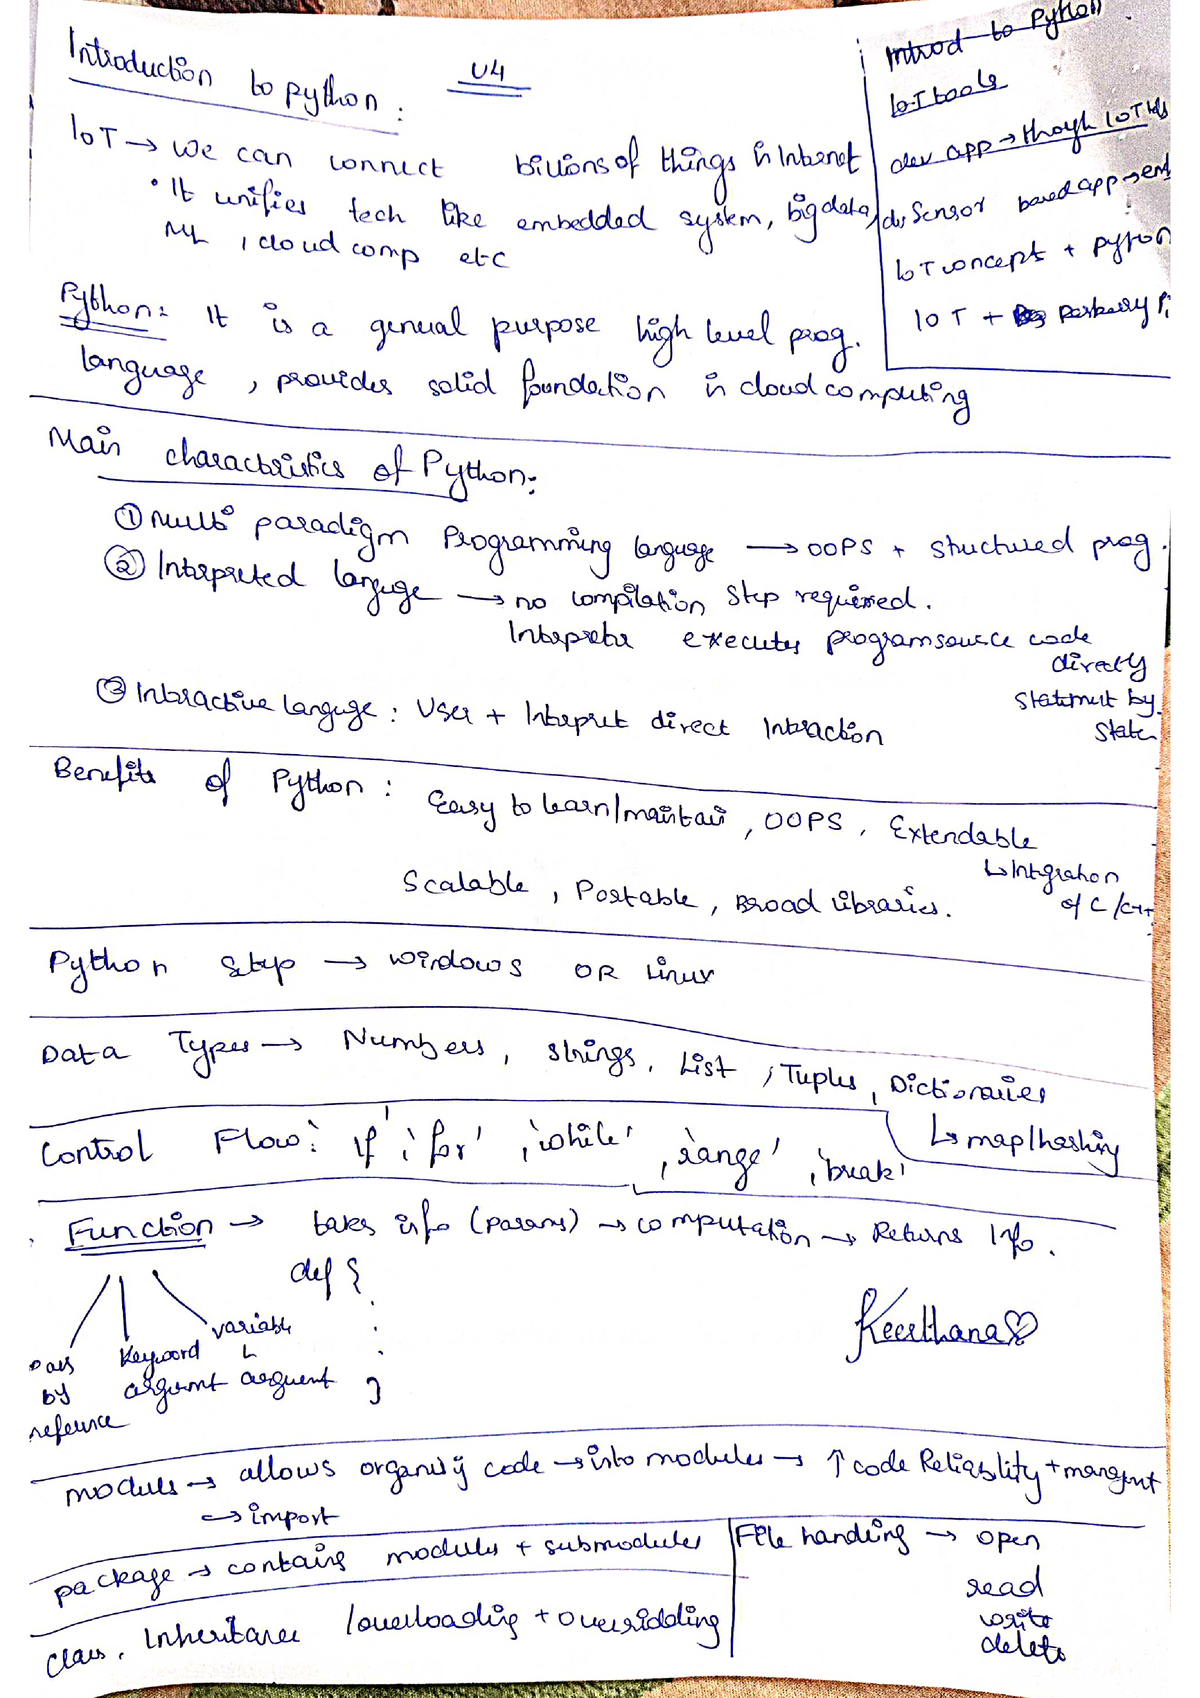 Introduction to python :
U4
IoT → we can connect billions of things in Internet
• It unifies tech like embedded system, big data,
ML , cloud comp etc
Introd to Python
IoT tools
dev app → though IOT
Sensor based app →
IoT concepts + python
IOT + Pi
Python: It is a general purpose high level prog.
language , provides solid foundation in cloud computing
Main characteristics of Python:
① Multi paradigm Programming language → OOPS + structured prog.
② Interpreted languge → no compilation step required.
Interpreter executes program source code
directly
statement by
state
③ Interactive languge : User + Interpret direct Interaction
Benefits of Python : Easy to learn/maintain , OOPS , Extendable
↳ Integration
of C / C++
Scalable , Portable , Broad libraries.
Python setup → windows OR Linux
Data Types → Numbers , strings , List , Tuples , Dictionaries
↳ map/hashing
Control Flow : 'if' , 'for' , 'while' , 'range' , 'break'
Function → takes info (params) → computation → Returns Info.
def {
}
Pass by reference
Keyword argumnt
variable L argument
Keerthana
modules → allows organisig code → into modules → ↑ code Reliability + managmnt
↪ import
package → contains modules + submodules
File handling → open
read
write
delete
Class , Inheritance / overloading + overridding